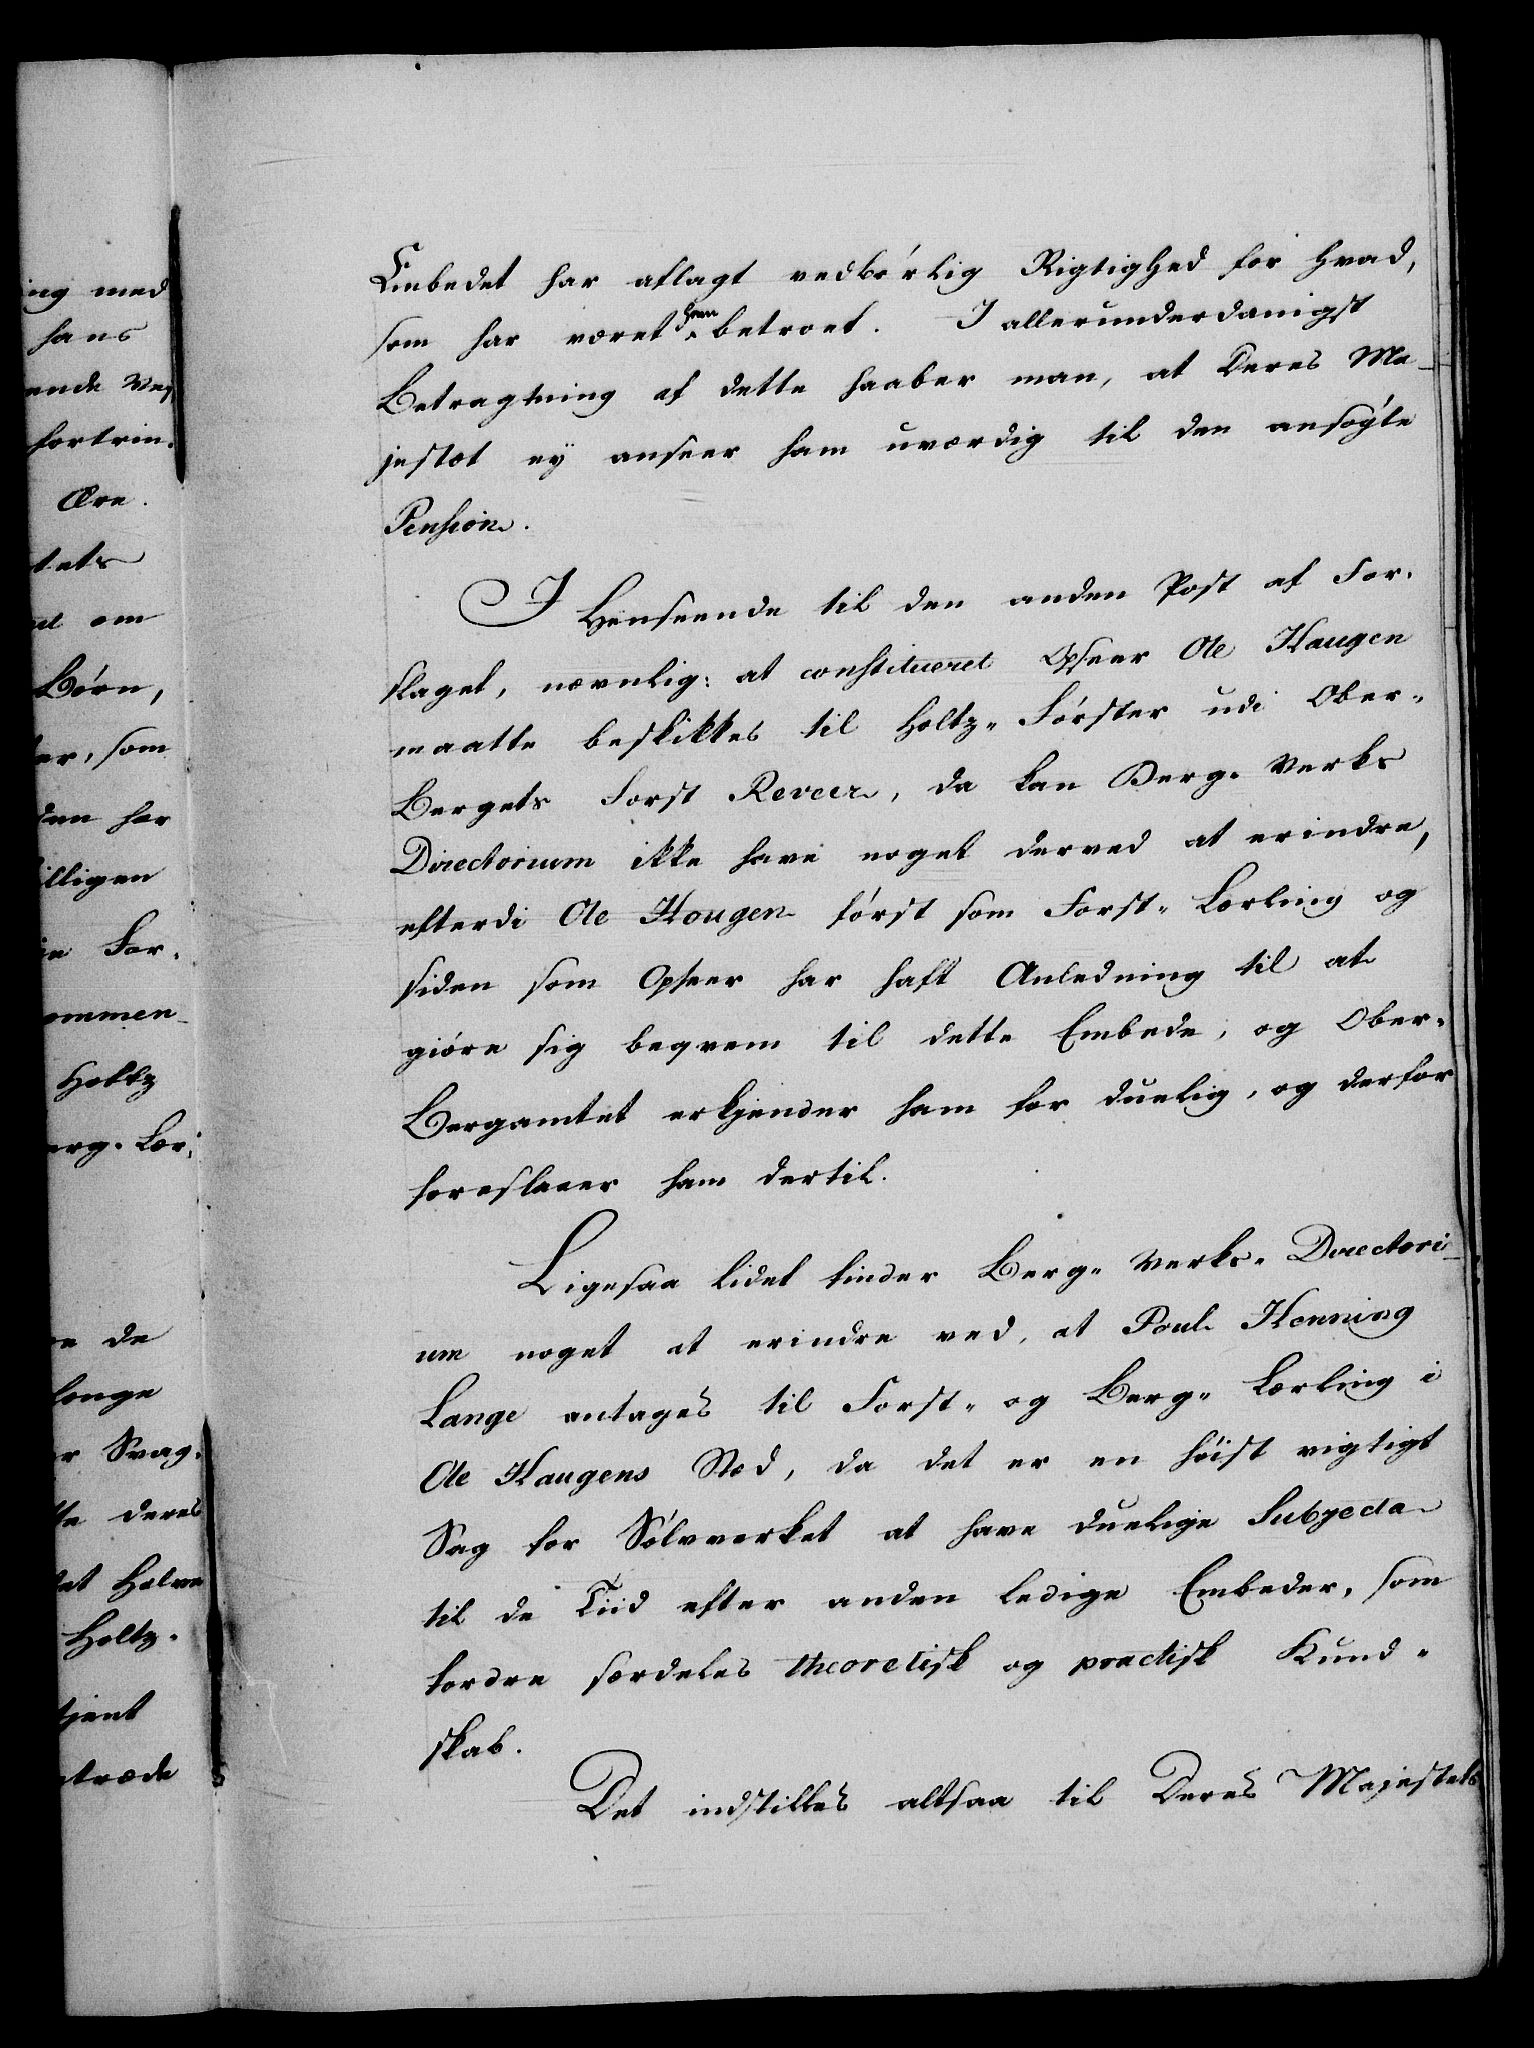 ing med
hans
ende Vej
fortrin-
Ære.
tets
et om
Børn,
er, som
den har
illigen
n For-
ommen-
Holtz
erg- Lær-
e de
længe
r Svag-
te deres
et Halve
Holtz-
tjent
træde
Embedet har aflagt vedbørlig Rigtighed for hvad,
som har været ham betroet. I allerunderdanigst
Betragtning af dette haaber man, at Deres Ma-
jestæt ey anseer ham uværdig til den ansøgte
Pension.
I Henseende til den anden Post af For-
slaget, nævnlig: at constitueret Opseer Ole Haugen
maatte beskikkes til Holtz-Førster udi Ober-
Bergets Forst Reveer, da kan Berg-Verks
Directorium ikke have noget derved at erindre,
efterdi Ole Hougen først som Forst-Lærling og
siden som Opseer har haft Anledning til at
giøre sig beqvem til dette Embede, og Ober-
Bergamtet erkjender ham for duelig, og derfor
foreslaaer ham dertil.
Ligesaa lidet finder Berg-Verks-Directori-
um noget at erindre ved, at Poul Henning
Lange antages til Forst- og Berg-Lærling i
Ole Haugens Sted, da det er en høist vigtigt
Sag for Sølvverket at have duelige Subjecta
til de Tiid efter anden ledige Embeder, som
fordre særdeles theoretisk og practisk Kund-
skab.
Det indstilles altsaa til Deres Majestæts